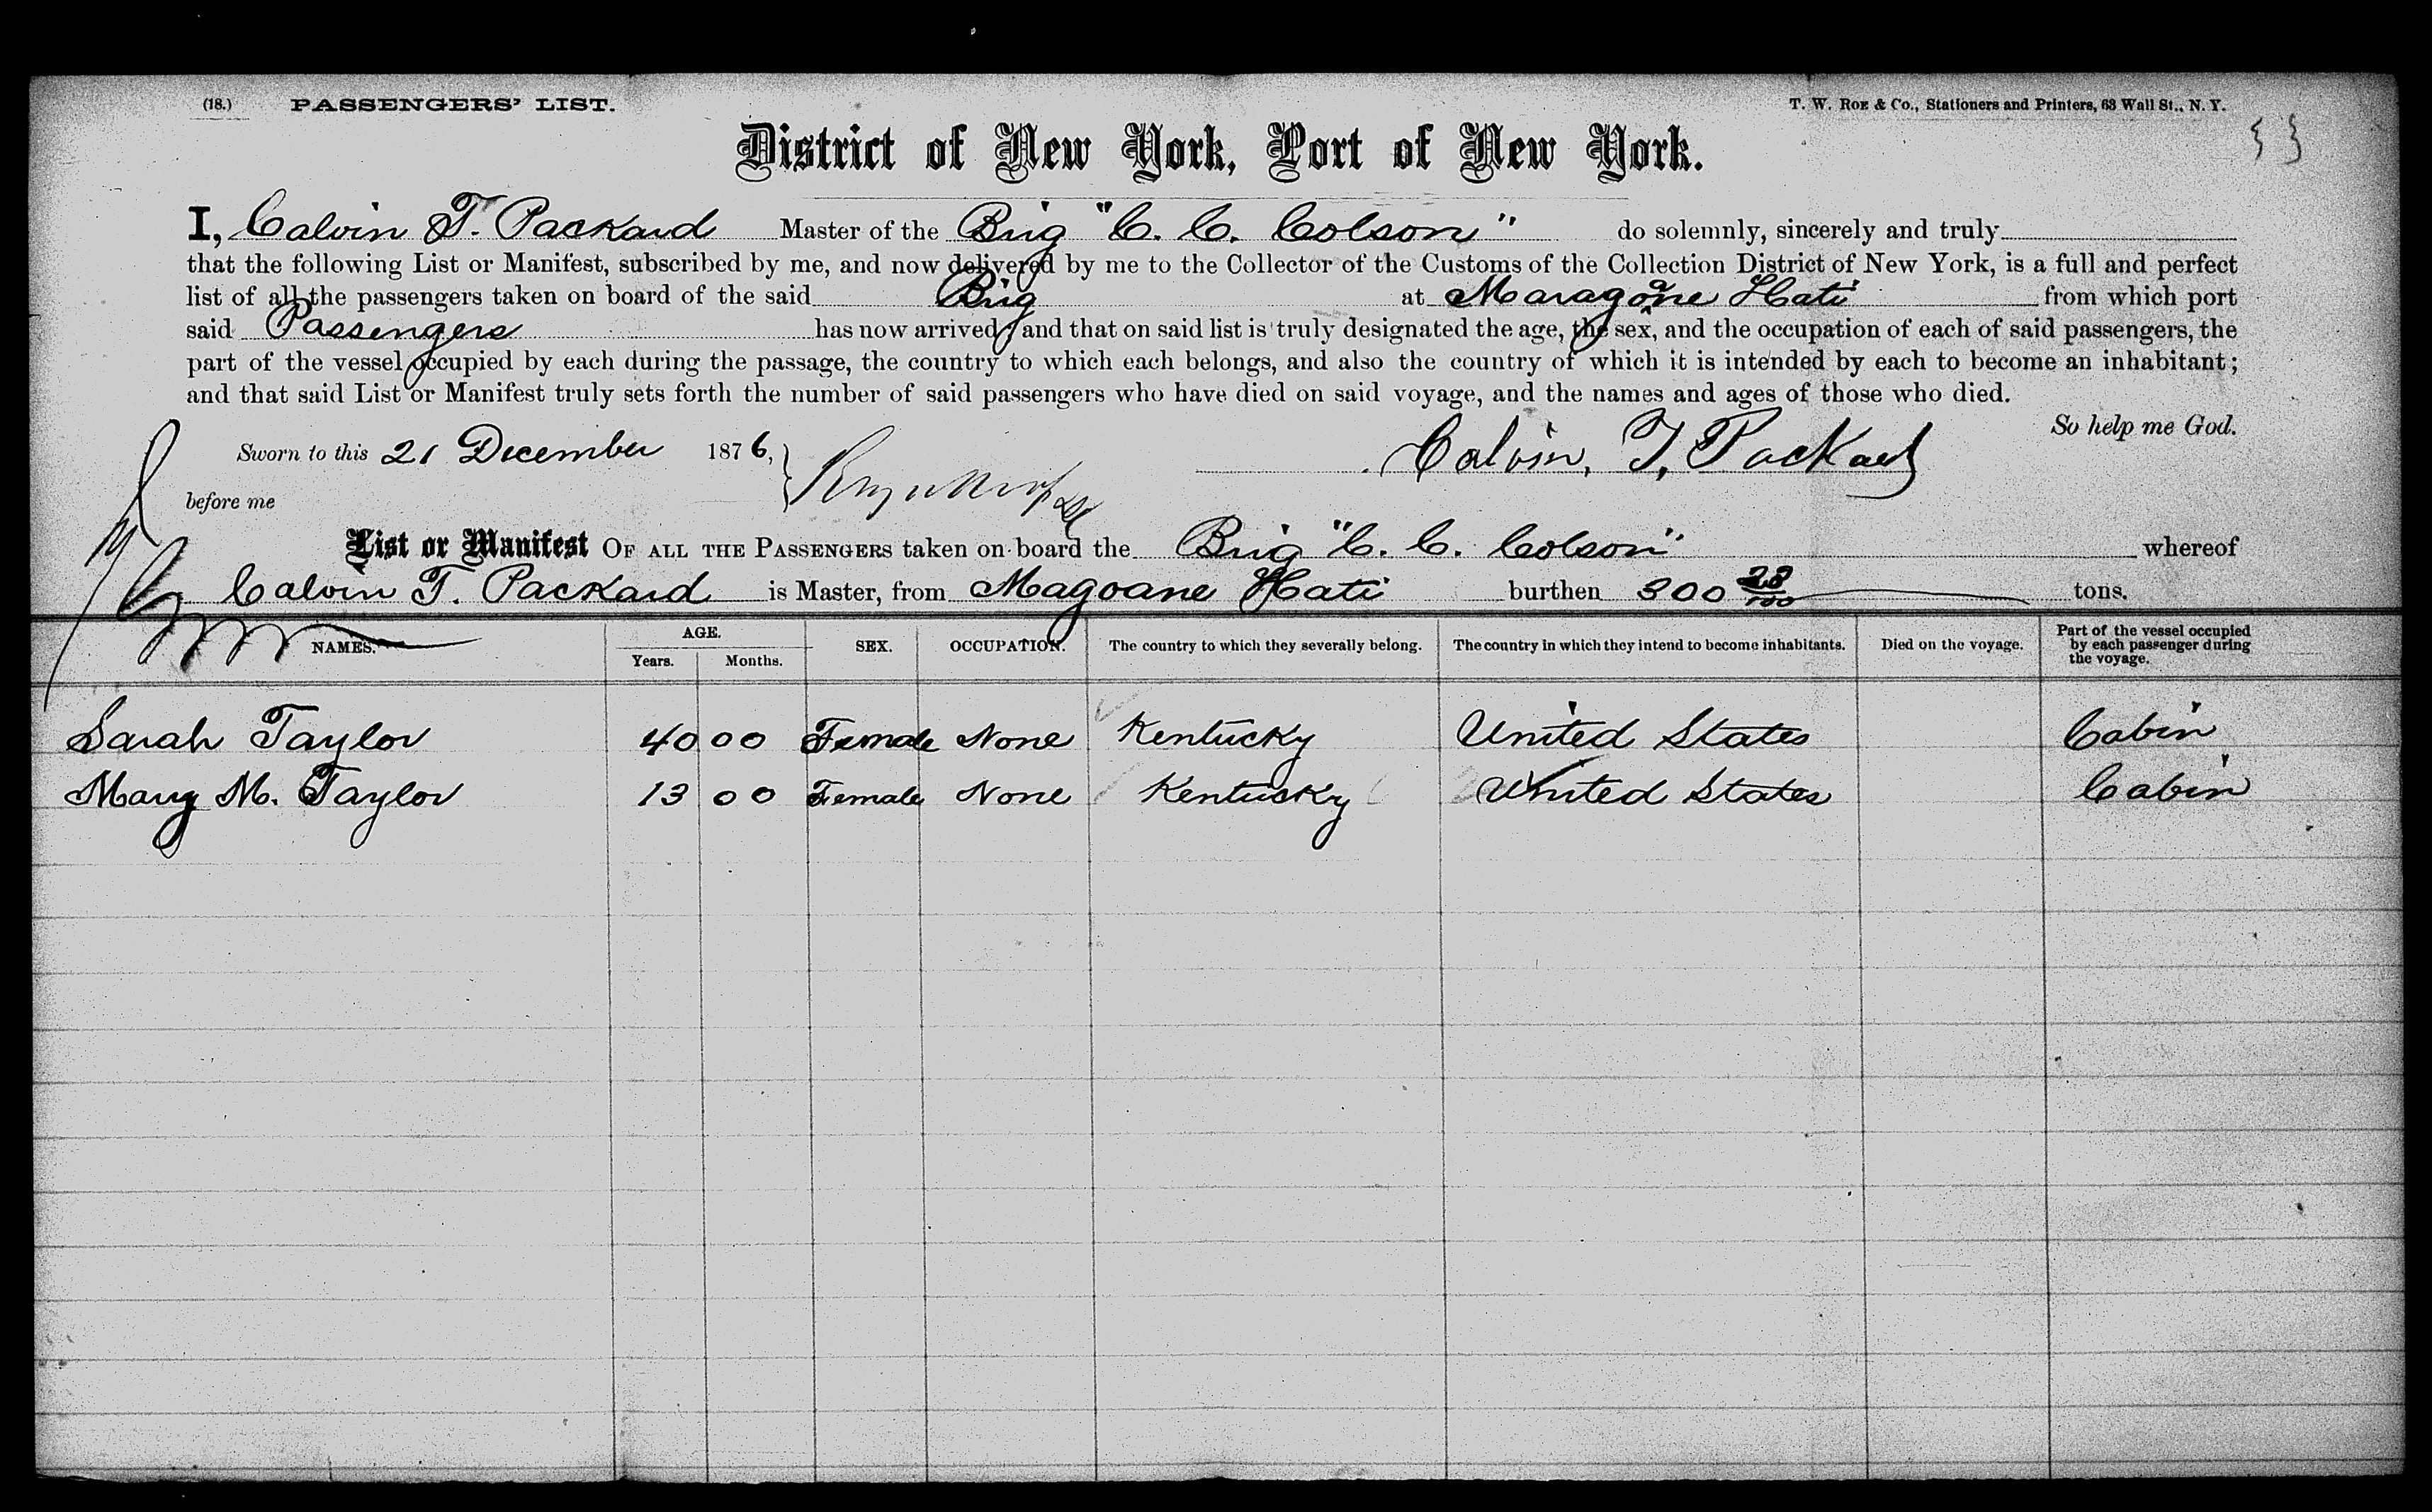 (18.) PASSENGERS' LIST. T. W. ROE & Co., Stationers and Printers, 63 Wall St., N. Y.
District of New York, Port of New York.
I, Calvin T. Packard Master of the Brig "C. C. Colson" do solemnly, sincerely and truly
that the following List or Manifest, subscribed by me, and now delivered by me to the Collector of the Customs of the Collection District of New York, is a full and perfect
list of all the passengers taken on board of the said Brig at Maragoane Hati from which port
said Passengers has now arrived; and that on said list is truly designated the age, the sex, and the occupation of each of said passengers, the
part of the vessel occupied by each during the passage, the country to which each belongs, and also the country of which it is intended by each to become an inhabitant;
and that said List or Manifest truly sets forth the number of said passengers who have died on said voyage, and the names and ages of those who died.
So help me God.
Sworn to this 21 December 1876, Calvin, T, Packard
before me
List or Manifest OF ALL THE PASSENGERS taken on board the Brig "C. C. Colson" whereof
Calvin T. Packard is Master, from Magoane Hati burthen 300 28/100 tons.
NAMES. AGE. Years. Months. SEX. OCCUPATION. The country to which they severally belong. The country in which they intend to become inhabitants. Died on the voyage. Part of the vessel occupied by each passenger during the voyage.
Sarah Taylor 40 00 Female None Kentucky United States Cabin
Mary M. Taylor 13 00 Female None Kentucky United States Cabin